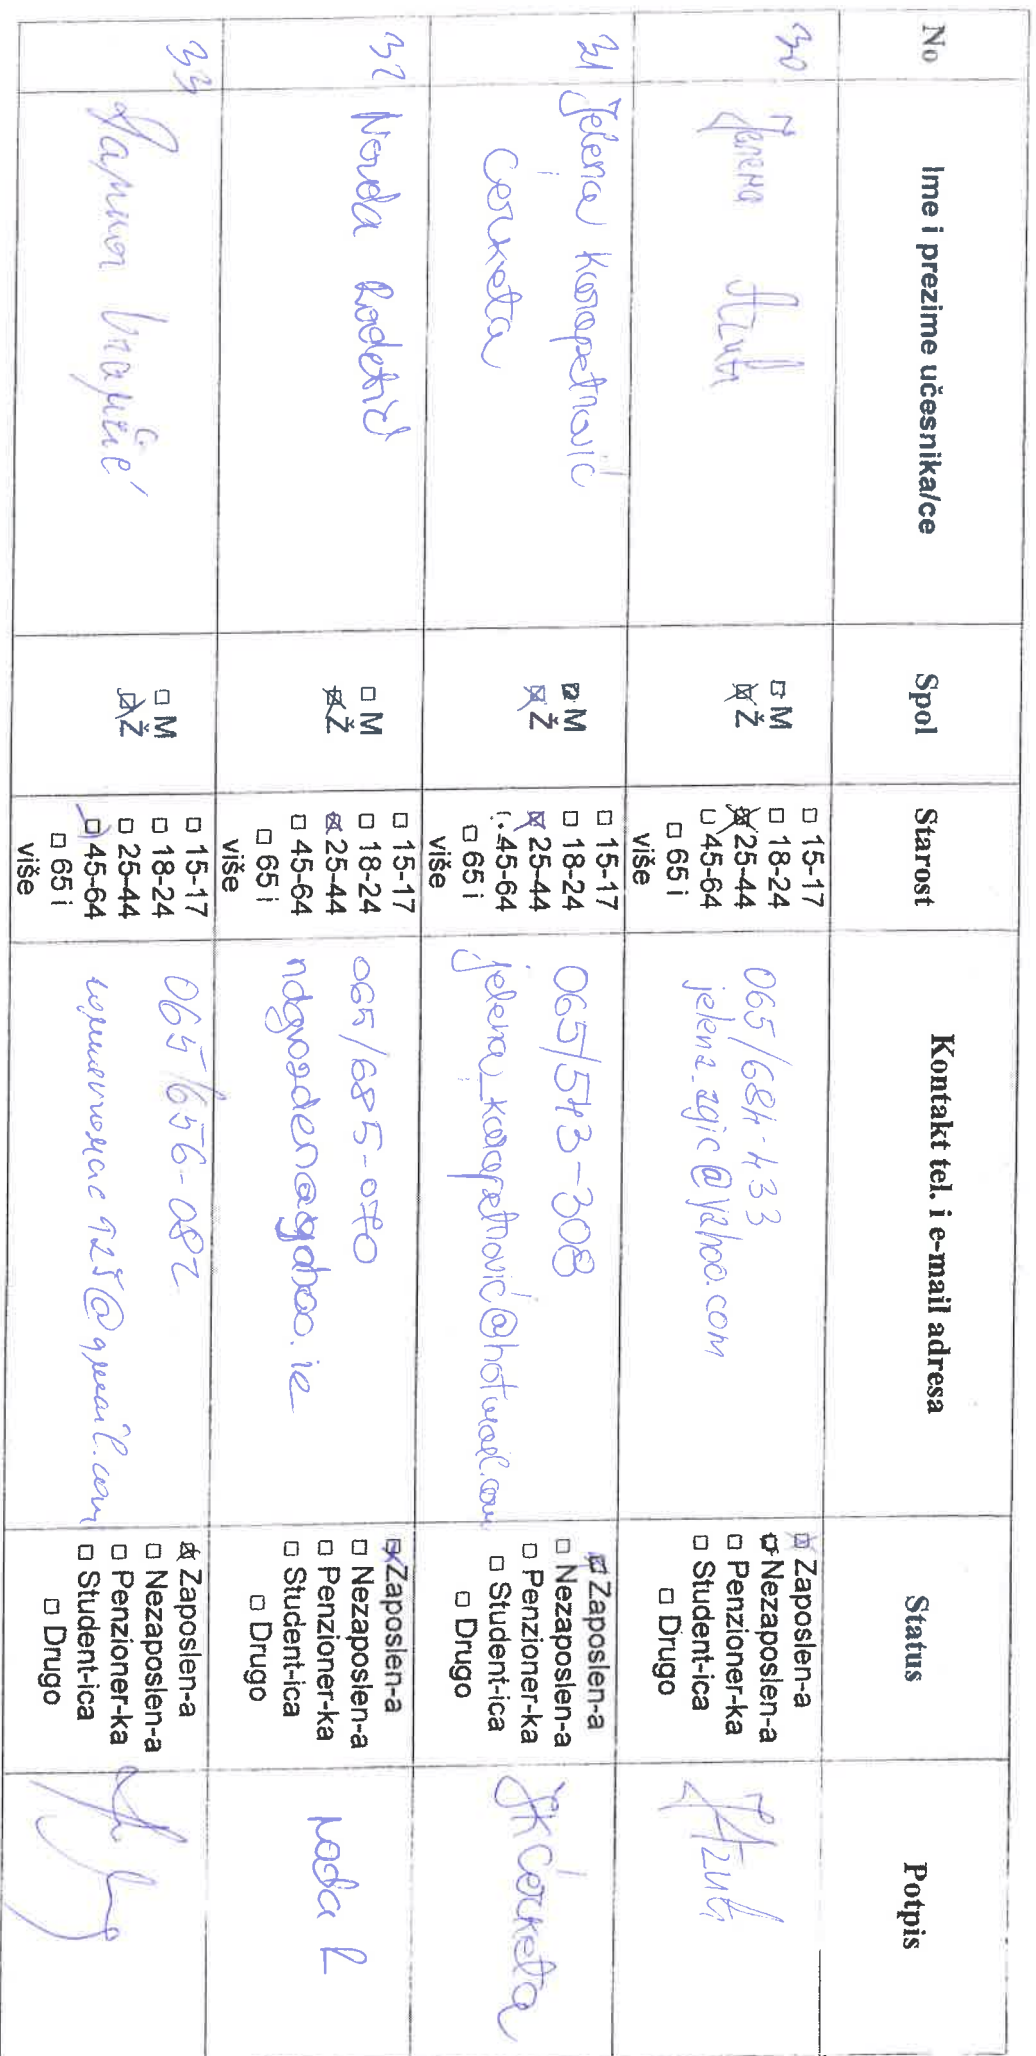 No Ime i prezime učesnika/ce Spol Starost Kontakt tel. i e-mail adresa Status Potpis
30
Јелена Агић
□ M
☒ Ž
□ 15-17
□ 18-24
☒ 25-44
□ 45-64
□ 65 i
više
065/684-433
jelena_agic@yahoo.com
☒ Zaposlen-a
□ Nezaposlen-a
□ Penzioner-ka
□ Student-ica
□ Drugo
31
Jelena Karapetrović
Ćerketa
□ M
☒ Ž
□ 15-17
□ 18-24
☒ 25-44
□ 45-64
□ 65 i
više
065/543-308
jelena_karapetrović@hotmail.com
☒ Zaposlen-a
□ Nezaposlen-a
□ Penzioner-ka
□ Student-ica
□ Drugo
JKĆerketa
32
Nada Radetić
□ M
☒ Ž
□ 15-17
□ 18-24
☒ 25-44
□ 45-64
□ 65 i
više
065/685-070
☒ Zaposlen-a
□ Nezaposlen-a
□ Penzioner-ka
□ Student-ica
□ Drugo
Nada R
33
□ M
☒ Ž
□ 15-17
□ 18-24
□ 25-44
☒ 45-64
□ 65 i
više
065/656-082
☒ Zaposlen-a
□ Nezaposlen-a
□ Penzioner-ka
□ Student-ica
□ Drugo